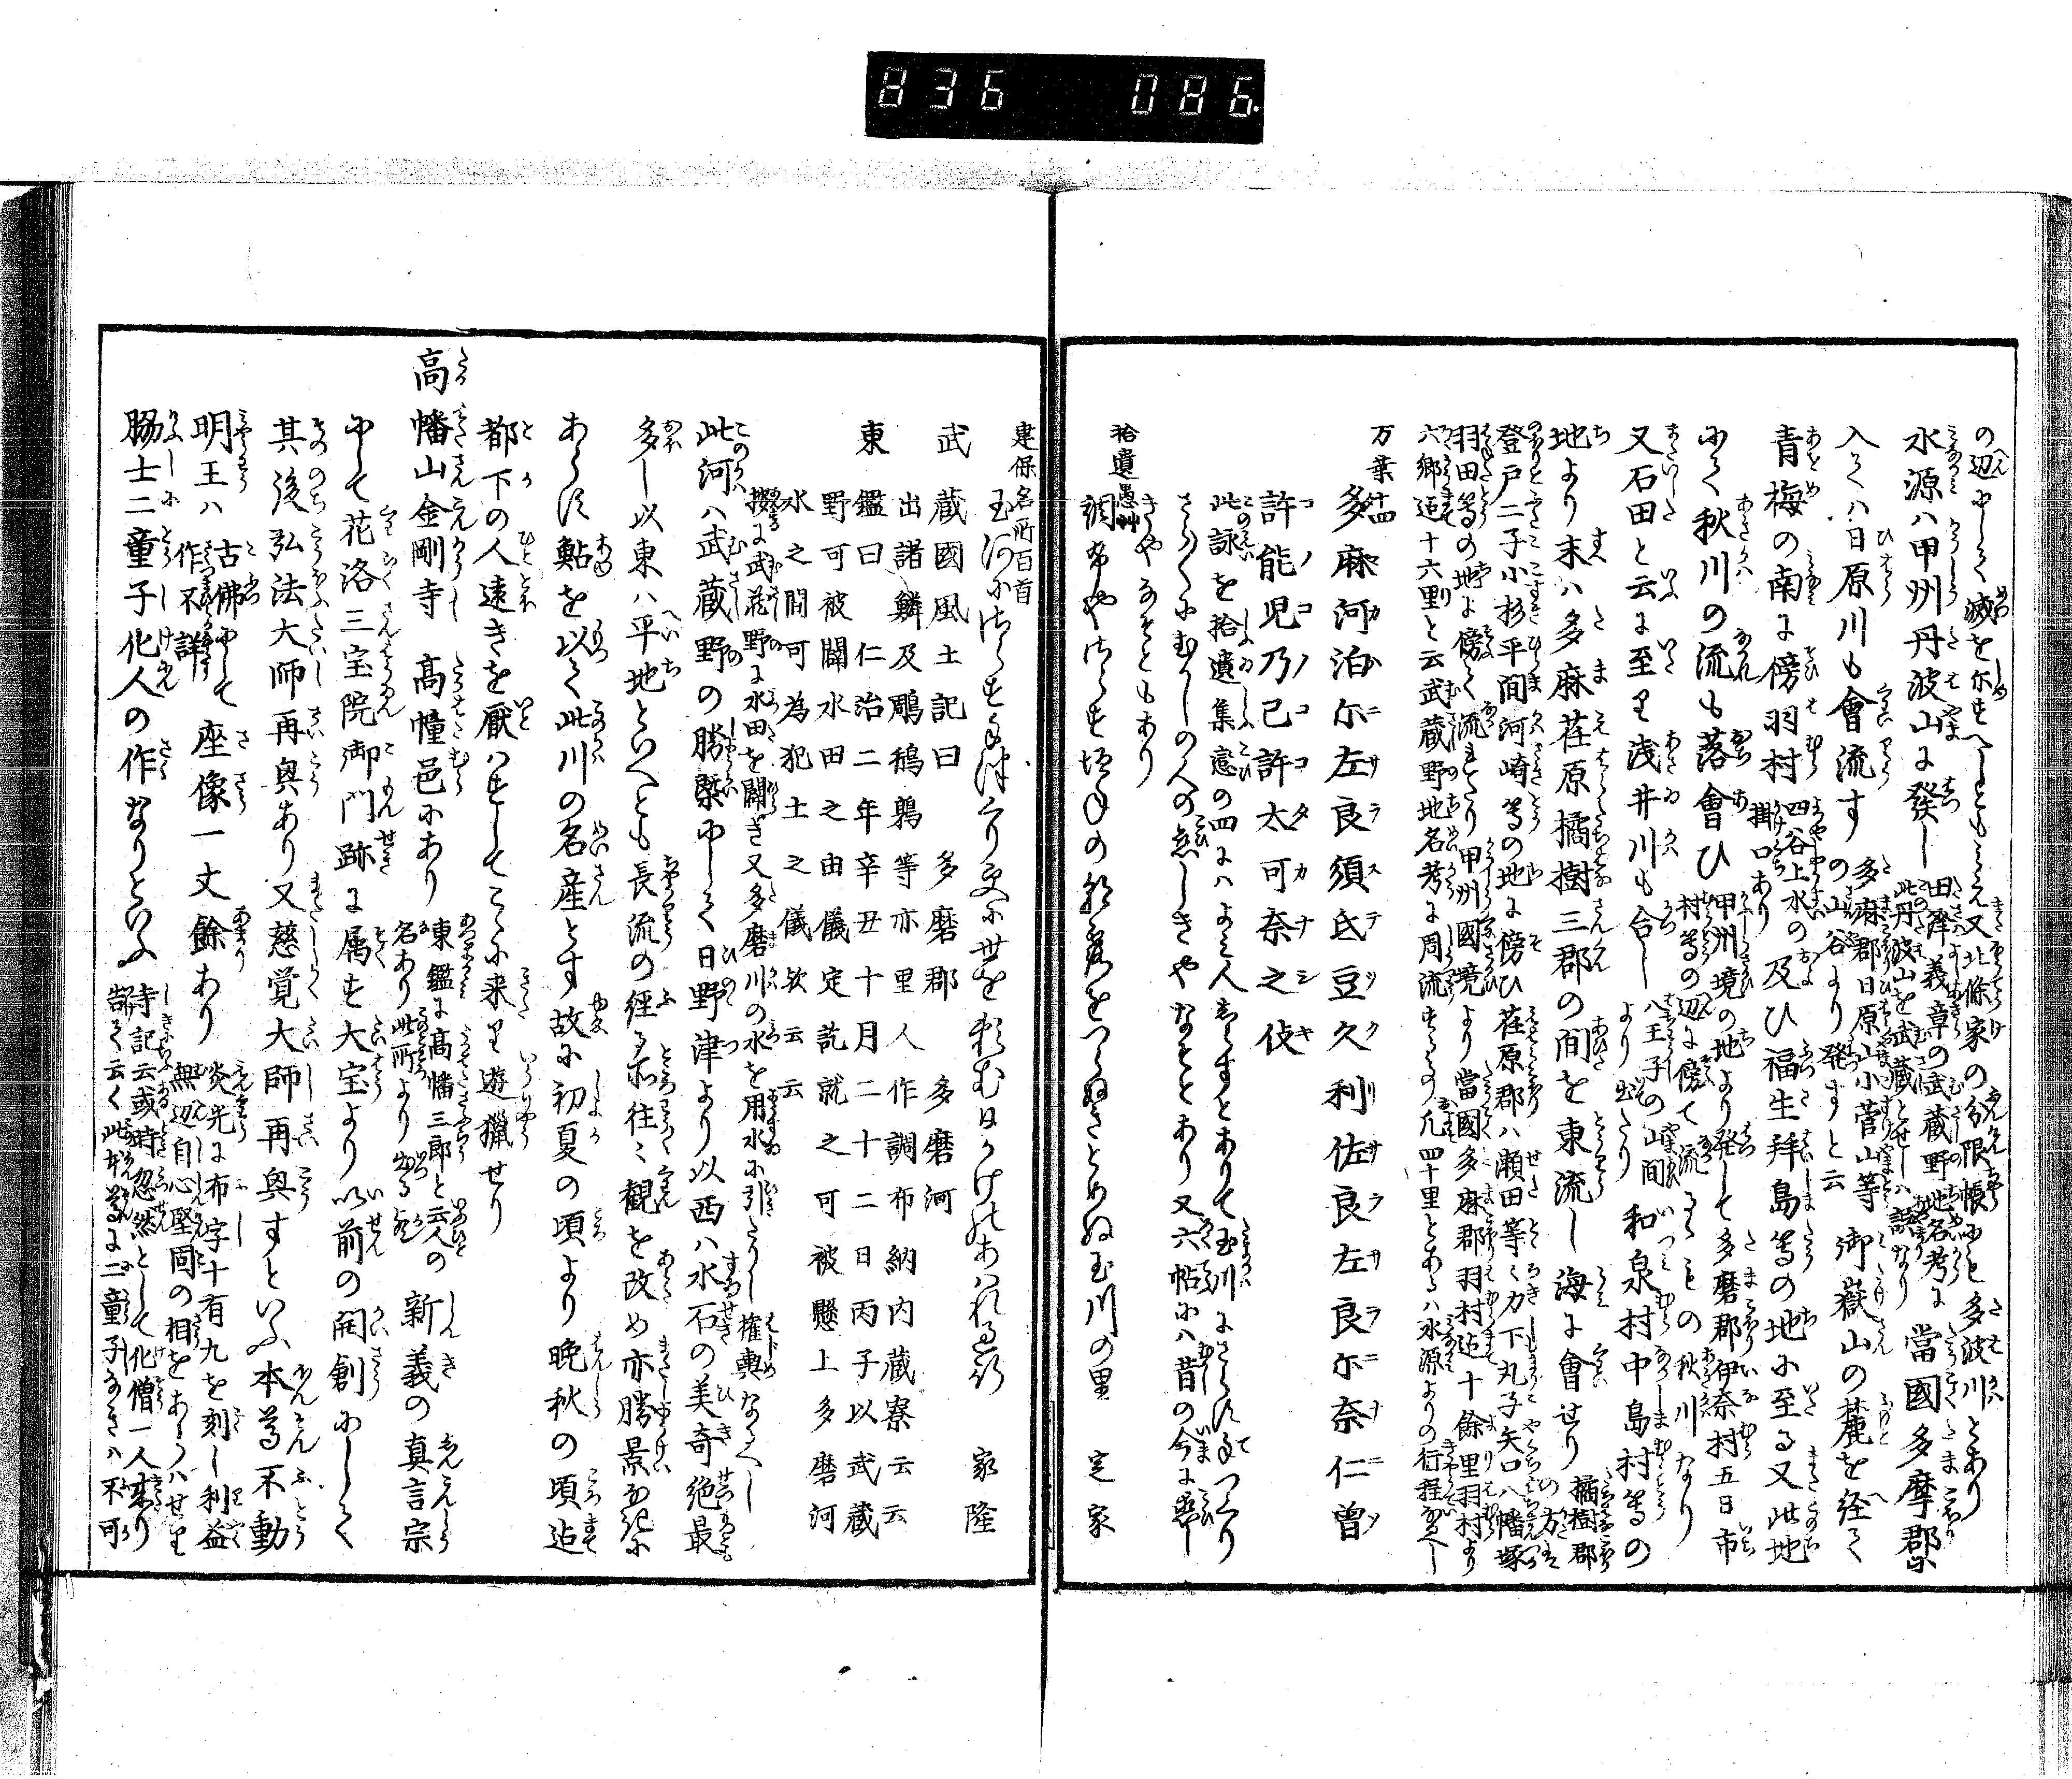 836 086
の辺にして滅を示すへしともみえ又北條家の分限帳にも多波川とあり
水源ハ甲州丹波山に發し
田澤義章の武蔵野地名考に
此丹波山を武蔵とせしハ誤なり
當國多摩郡に
入てハ日原川も會流す
多麻郡日原山小菅山等
の山谷より発すと云
御嶽山の麓を経て
青梅の南に傍羽村
四谷上水の
掛口あり
及ひ福生拜島等の地に至る又此地
にて秋川の流も落會ひ
甲州境の地より発して多磨郡伊奈村五日市
村等の辺に傍て流るゝもの秋川なり
又石田と云に至り浅井川も合し
八王子の山間
より出たり
和泉村中島村等の
地より末ハ多麻荏原橘樹三郡の間を東流し海に會せり
橘樹郡
の方は
登戸二子小杉平間河崎等の地に傍ひ荏原郡ハ瀬田等々力下丸子矢口八幡塚
羽田等の地に傍て流れたり甲州國境より當國多麻郡羽村迄十餘里羽村より
六郷迄十六里と云武蔵野地名考に周流するの凡四十里とあるハ水源よりの行程なるへし
万葉十四
多麻河泊尓左良須氐豆久利佐良左良尓奈仁曽
許能児乃己許太可奈之伎
此詠を拾遺集恋の四にハよみ人しらすとありて玉川にさらす手つくり
さらさらにむかしの人の恋しきやなそとあり又六帖にハ昔の今に恋し
きやなそともあり
拾遺愚艸
調布やさらす垣根の朝露をつらぬきとめぬ玉川の里 定家
建保名所百首
玉河にさらす手作り更に世を 家隆
武蔵國風土記曰 多磨郡 多磨河
出諸鱗及鵰鵠鶉等亦里人作調布納内蔵寮云云
東鑑曰仁治二年辛丑十月二十二日丙子以武蔵
野可被開水田之由儀定訖就之可被懸上多磨河
水之間可為犯土之儀欤云云
按に武蔵野に水田を開き又多磨川の水を用水に引たりし權輿なるへし
此河ハ武蔵野の勝槩にして日野津より以西ハ水石の美奇絶最
多し以東ハ平地といへとも長流の経る所往々觀を改め亦勝景なきに
あらす鮎を以て此川の名産とす故に初夏の頃より晩秋の頃迄
都下の人遠きを厭ハすしてこゝに来り遊獵せり
高幡山金剛寺 高幢邑にあり
東鑑に高幡三郎と云人の
名あり此所より出るか
新義の真言宗
にして花洛三宝院御門跡に属す大宝より以前の開創にして
其後弘法大師再興あり又慈覚大師再興すといふ本尊不動
明王ハ
古佛にして
作不詳
座像一丈餘あり
炎光に布字十有九を刻し利益
無辺自心堅固の相をあらハせり
脇士二童子化人の作なりといふ
寺記云或時忽然として化僧一人来り
告て云く此本尊に二童子なきハ不可